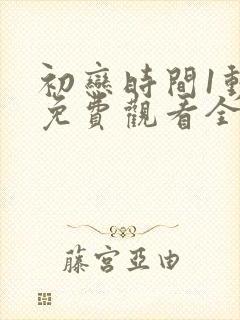 初戀時間1動
免費觀看全
藤宮亞由